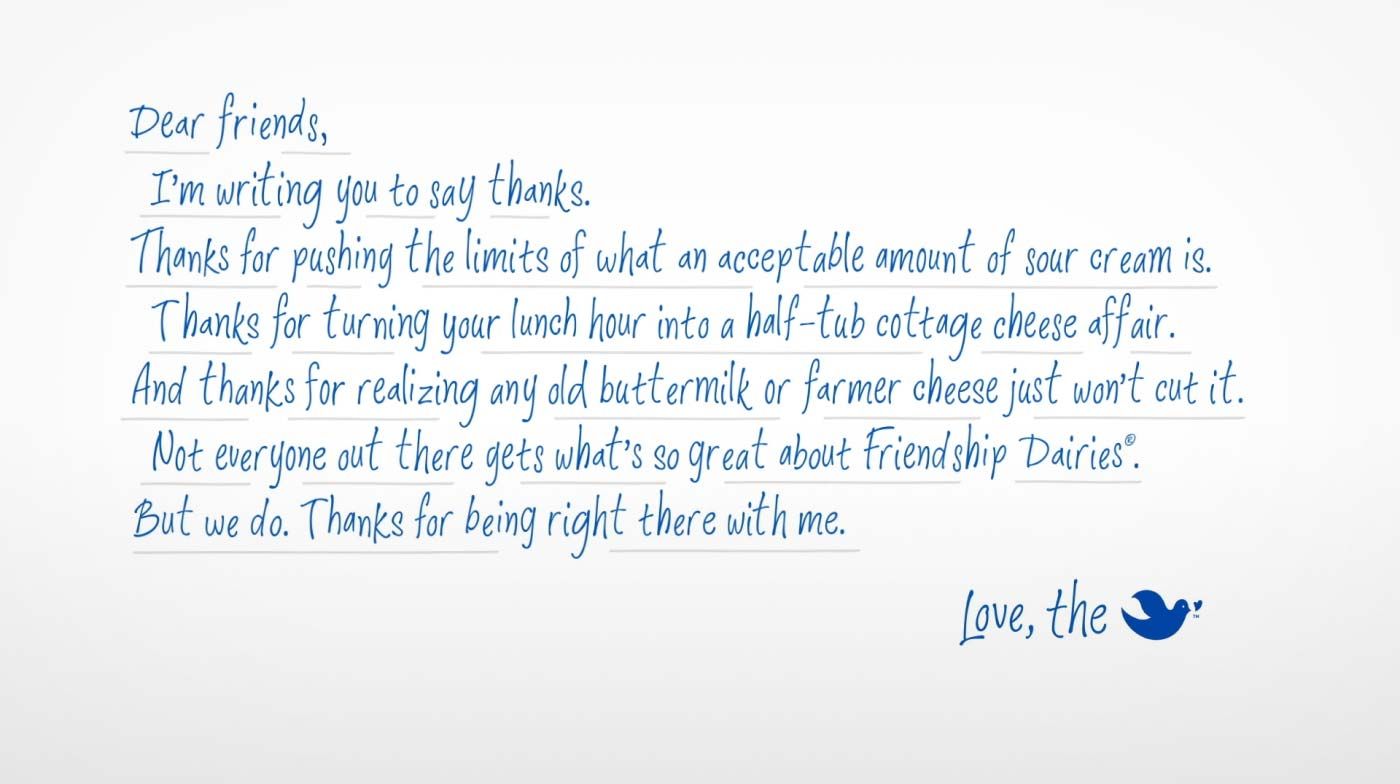 Dear friends,
I'm writing you to say thanks.
Thanks for pushing the limits of what an acceptable amount of sour cream is.
Thanks for turning your lunch hour into a half-tub cottage cheese affair.
And thanks for realizing any old buttermilk or farmer cheese just won't cut it.
Not everyone out there gets what's so great about Friendship Dairies®.
But we do. Thanks for being right there with me.
Love, the ™